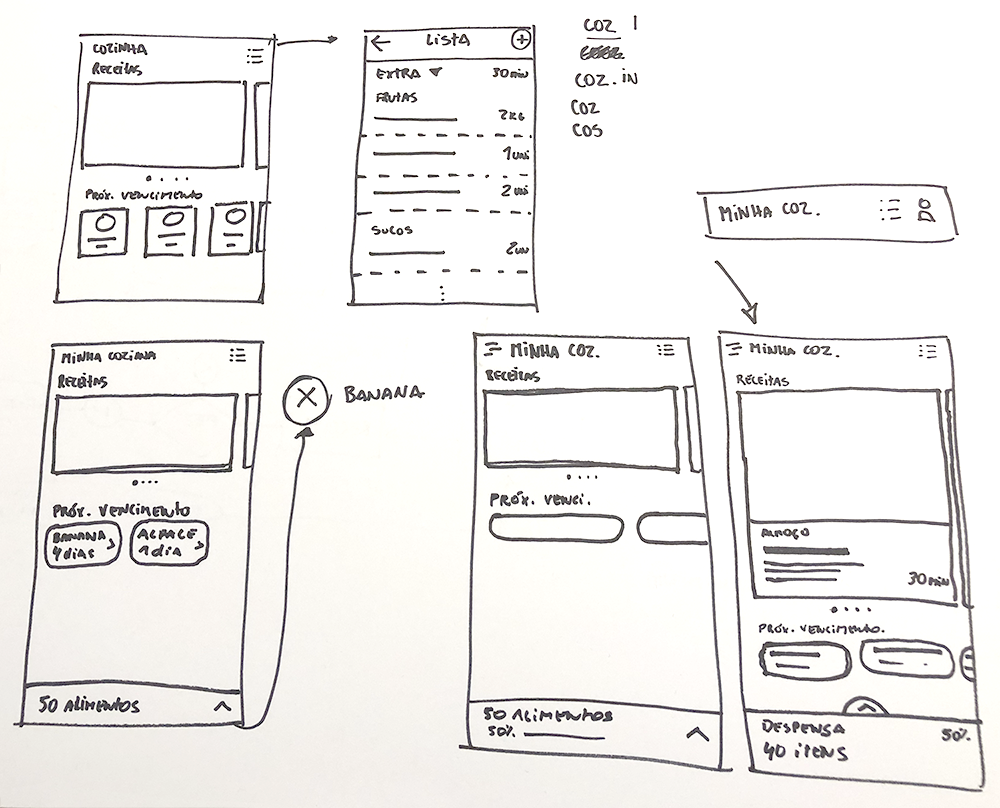 COZINHA
RECEITAS
PRÓX. VENCIMENTO
LISTA
EXTRA
30 min
FRUTAS
2KG
1 uni
2 uni
SUCOS
2 UN
COZ 1
COZ.iN
COZ
COS
MiNHA COZ.
MiNHA COZiANA
RECEITAS
PRÓX. VENCIMENTO
BANANA
4 diAS
ALFACE
1 diA
50 ALIMENTOS
BANANA
MiNHA COZ.
RECEITAS
PRÓX. VENCi.
50 ALiMENTOS
50%
MiNHA COZ.
RECEITAS
ALMOÇO
30 min
PRÓX. VENCiMENTO.
DESPENSA
50%
40 iTENS